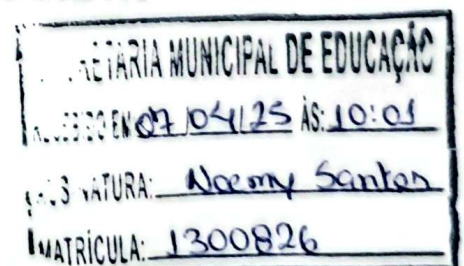 SECRETARIA MUNICIPAL DE EDUCAÇÃO
RECEBIDO EM 07/04/25 ÀS: 10:01
ASSINATURA: Noemy Santos
MATRÍCULA: 1300826